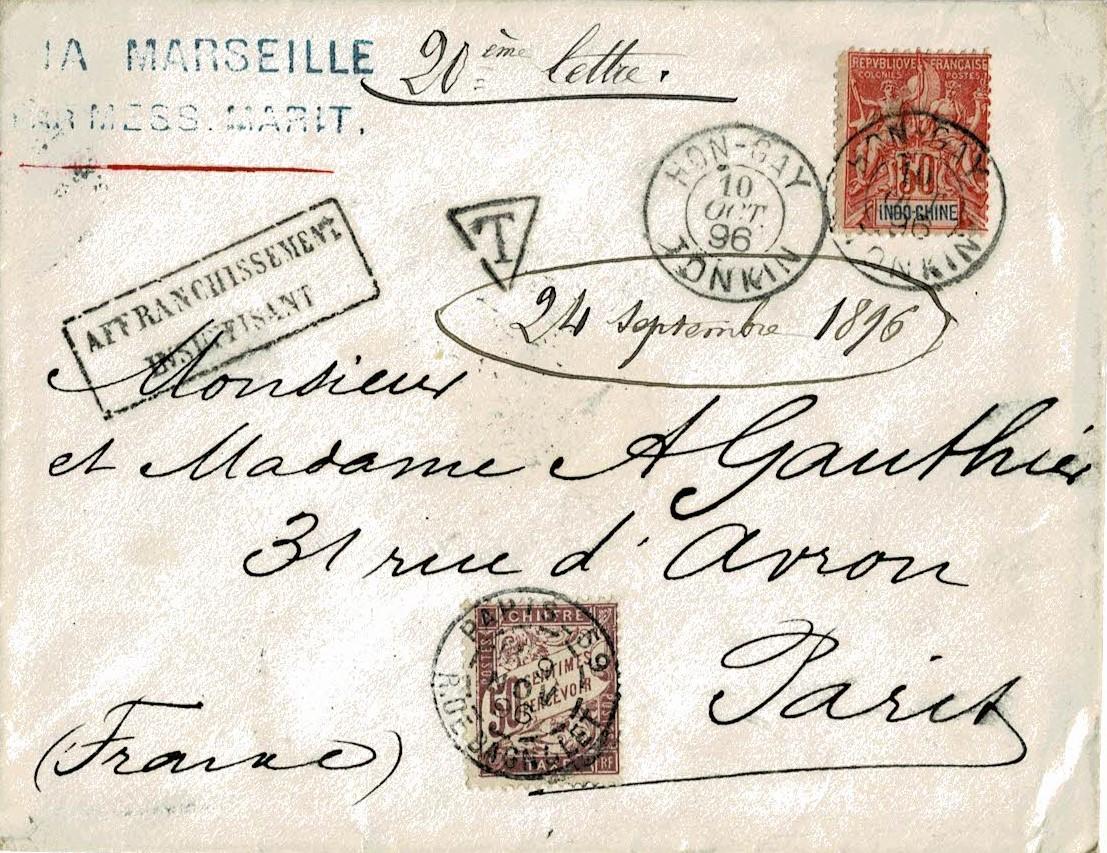 IA MARSEILLE
PAR MESS. MARIT.
20ème lettre.
REPUBLIQUE FRANCAISE
COLONIES POSTES
50
INDO-CHINE
HON-GAY
10
OCT
96
TONKIN
HON-GAY
10
OCT
96
TONKIN
T
AFFRANCHISSEMENT
INSUFFISANT
24 septembre 1896
Monsieur
et Madame A Gauthier
31 rue d'Avron
Paris
(France)
CHIFFRE
POSTES
50 CENTIMES
PERCEVOIR
RF
PARIS-59
R. DE BAGNOLET